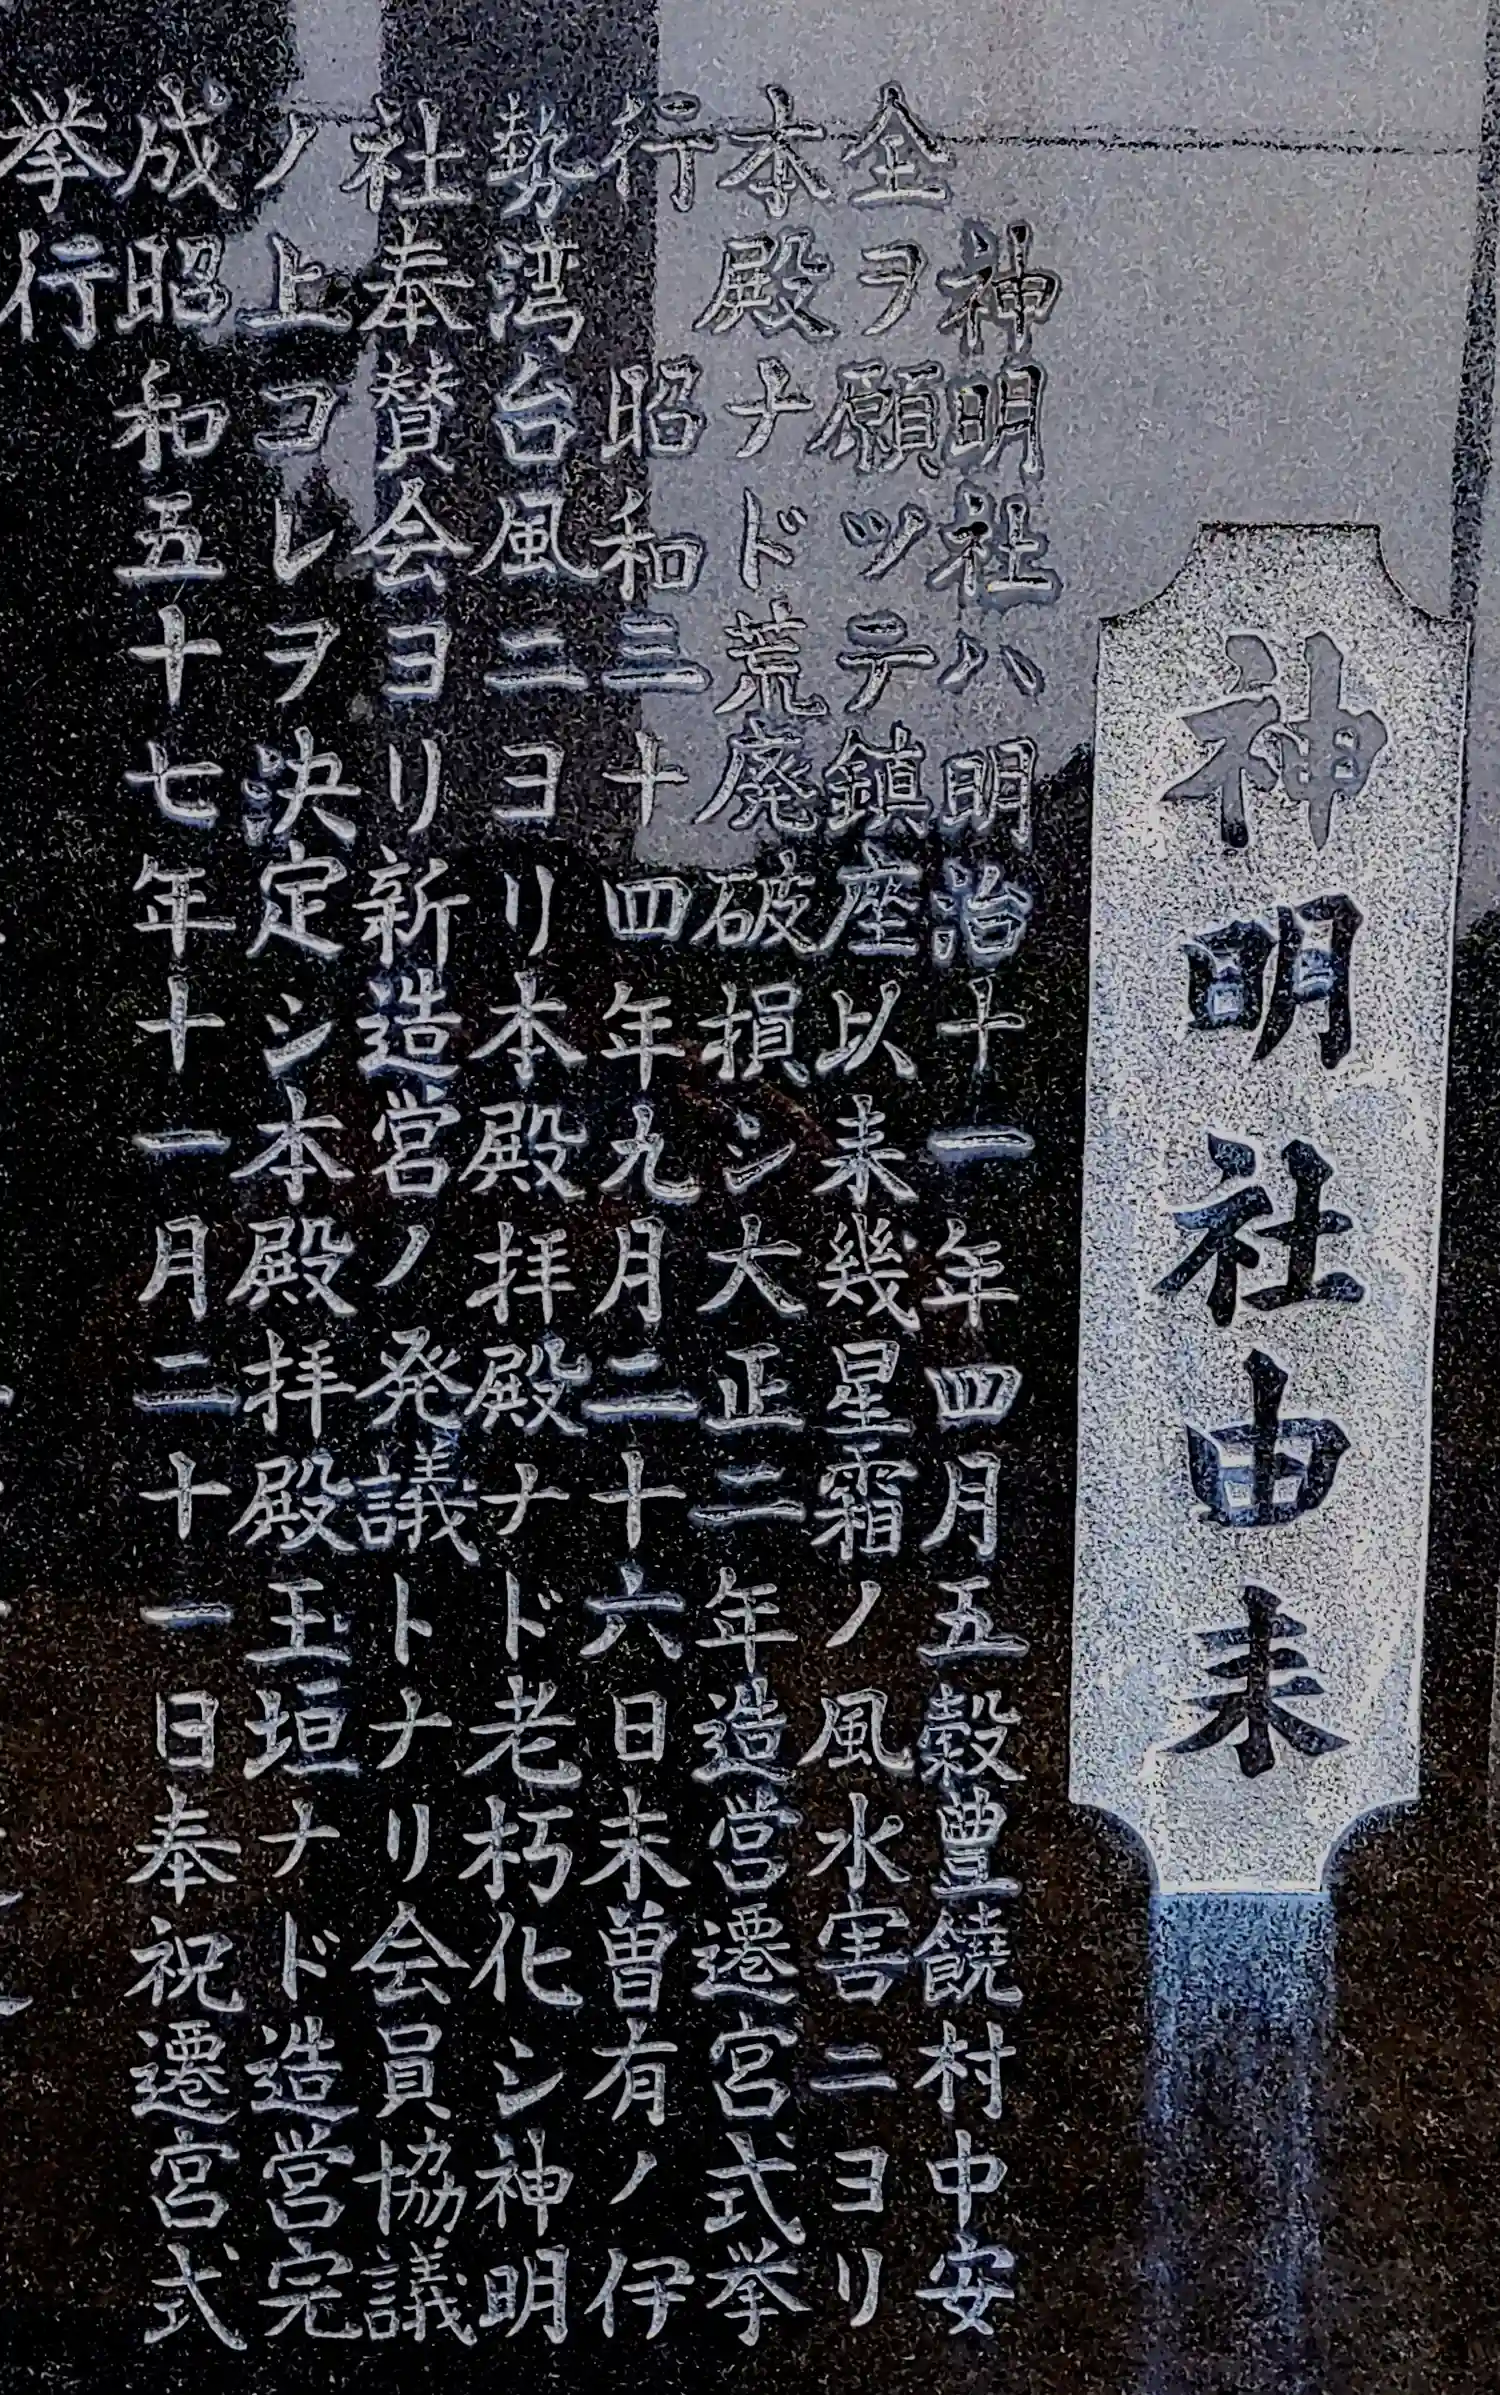 神明社由来
神明社ハ明治十一年四月五穀豊饒村中安
全ヲ願ツテ鎮座以来幾星霜ノ風水害ニヨリ
本殿ナド荒廃破損シ大正二年造営遷宮式挙
行 昭和三十四年九月二十六日未曽有ノ伊
勢湾台風ニヨリ本殿拝殿ナド老朽化シ神明
社奉賛会ヨリ新造営ノ発議トナリ会員協議
ノ上コレヲ決定シ本殿拝殿玉垣ナド造営完
成昭和五十七年十一月二十一日奉祝遷宮式
挙行